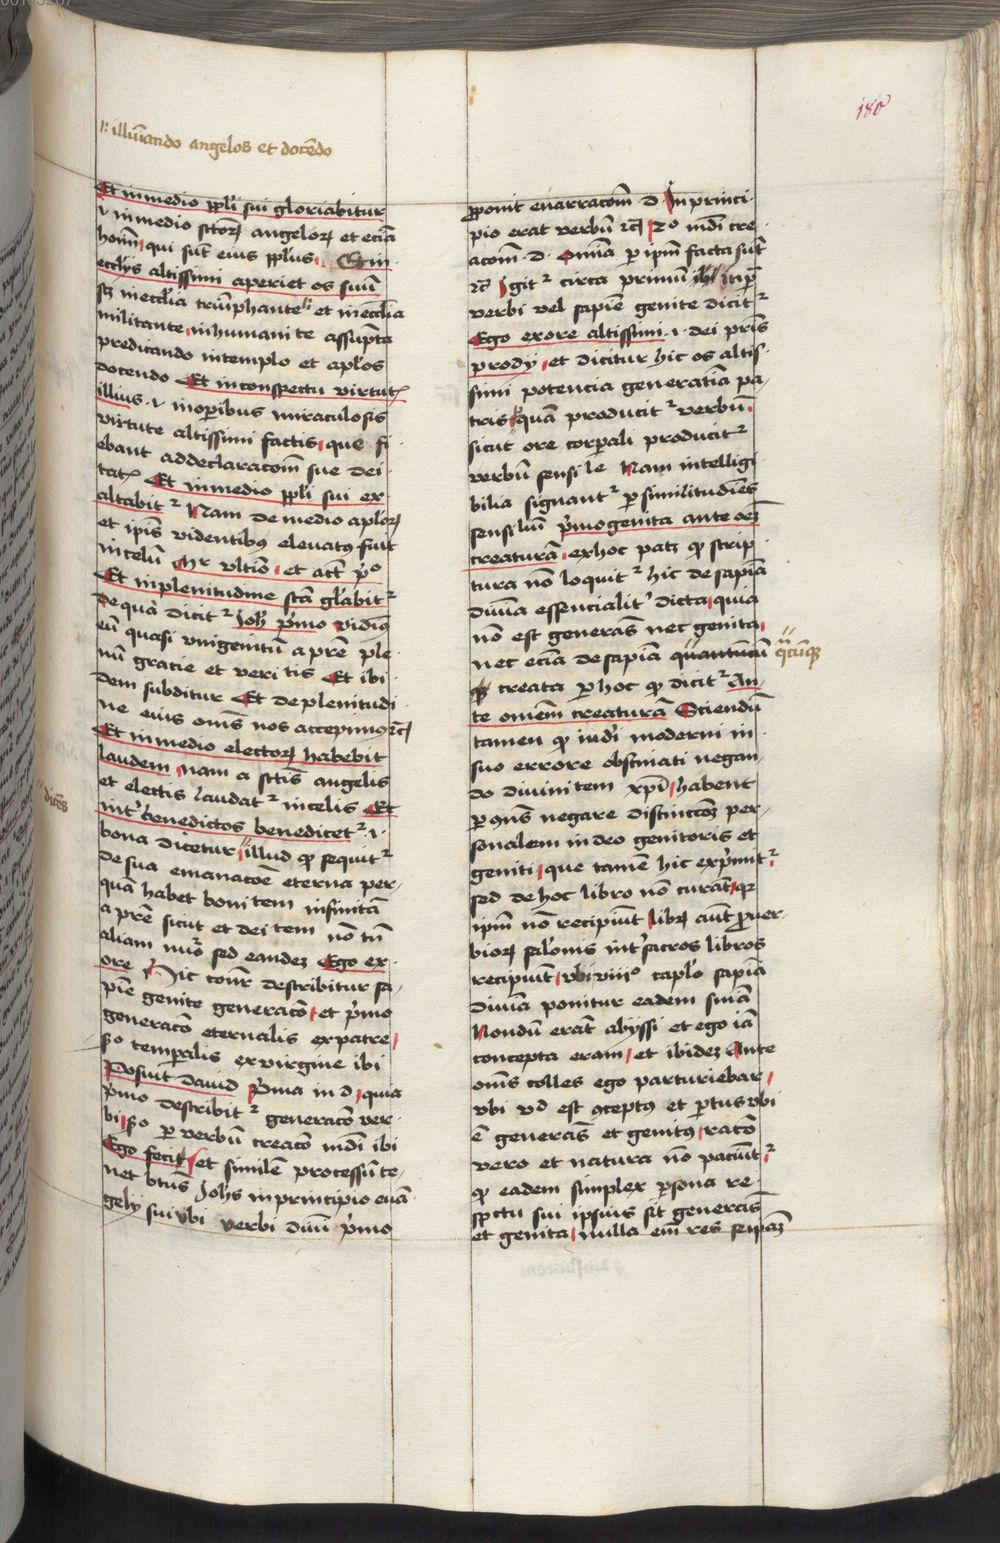 180
i: illuminando angelos et docendo
Et in medio ppli sui gloriabitur
.i. in medio sctorꝝ angelorꝝ et eciā
hoīm qui sūt eius pplus. Et in
ecclīis altissimi aperiet os suū
scꝫ in ecclīa triūphante et in ecclīa
militante in humanitate assūpta
predicando in templo et aplos
docendo Et in conspectu virtutꝭ
illius .i. in operibus miraculosis
virtute altissimi factis que fi
ebant ad declaracoēm sue dei
tatꝭ Et in medio ppli sui ex
altabitᷣ Nam de medio aplorꝝ
et ipīs videntibꝯ eleuatꝯ fuit
in celū Mr vltīo et act pᵒ
Et in plenitudine sctā glābitᷣ
de qua dicitᷣ Joh pmo vidimꝯ
eū quasi vnigenitū a prē ple
nū gratie et veritatis Et ibi
dem subditur Et de plenitudi
ne eius omēs nos accepimꝯ ꝛc
Et in medio electorꝝ habebit
laudem nam a sctīs angelis
et electis laudatᷣ in celis Et
inter benedictos benedicetᷣ .i.
dicēs
bona dicetur illud qd sequitᷣ
de sua emanacoē eterna per
quā habet bonitatem infinitā
a prē sicut et deitatem non tn
aliam nūo sed eandeꝫ Ego ex
ore Hic cōnr describitur sa
pīe genite generacō et pmo
generacō eternalis ex patre
sᵒ temporalis ex virgine ibi
Posuit dauid prīma in d quia
pmo describitᷣ generacō ver
bi sᵒ per verbū creacō mūdi ibi
Ego feci et similē processū te
net btus Johīs in principio euā
gelij sui vbi verbi diuīi pmo
proponit enarracoēm d In princi
pio erat verbū ꝛc 2ᵒ mūdi cre
acoēm d Omīa per ipm facta sūt
ꝛc Igitᷣ circa primū
verbi vel sapīe genite dicitᷣ
Ego ex ore altissimi .i. dei pris
prodij et dicitur hic os altis
simi potencia generatiua pa
tris per quā producitᷣ verbū
sicut ore corporali producitᷣ
verbū sensile Nam intelligi
bilia signantᷣ per similitudīes
sensiliū primogenita ante oēꝫ
creaturā ex hoc patꝫ qd scrip
tura nō loquitᷣ hic de sapīa
diuīa essencialitᷣ dicta quia
nō est generās nec genita
nec eciā de sapīa quantūcū
creata per hoc qd dicitᷣ An
te omēm creaturā Sciendū
tamen qd iudei moderni in
suo errore obstinati negan
do diuinitatem xpi habent
per ꝯn̄s negare distinccoēm per
sonalem in deo genitoris et
geniti que tamē hic exprīmitᷣ
sed de hoc libro nō curāt qꝛ
ipm nō recipiūt librꝫ aūt prouer
biorꝝ salomīs int sacros libros
recipiūt vbi viiiᵒ caplo sapīa
diuīa ponitur eadem snīa
Nondū erāt abyssi et ego iā
concepta eram et ibideꝫ Ante
omēs colles ego parturiebar
vbi vᵒ est ꝯceptꝯ et partus vbi
ē generās et genitꝯ racō
vero et natura nō paciūtᷣ
qd eadem simplex persona re
spectu sui ipsius sit generās
et genita nulla eīm res seipāꝫ